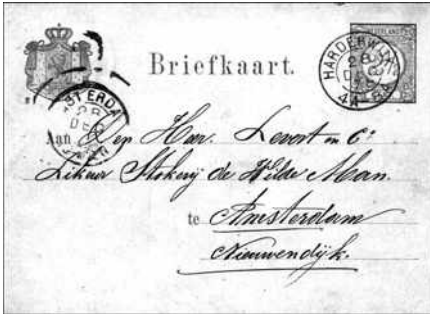 Briefkaart.
HARDERWIJK
28
DEC
AMSTERDA
28
DEC
Aan den Heer Levert en Co
Likeur Stokerij de Wilde Man.
te Amsterdam
Nieuwendijk.